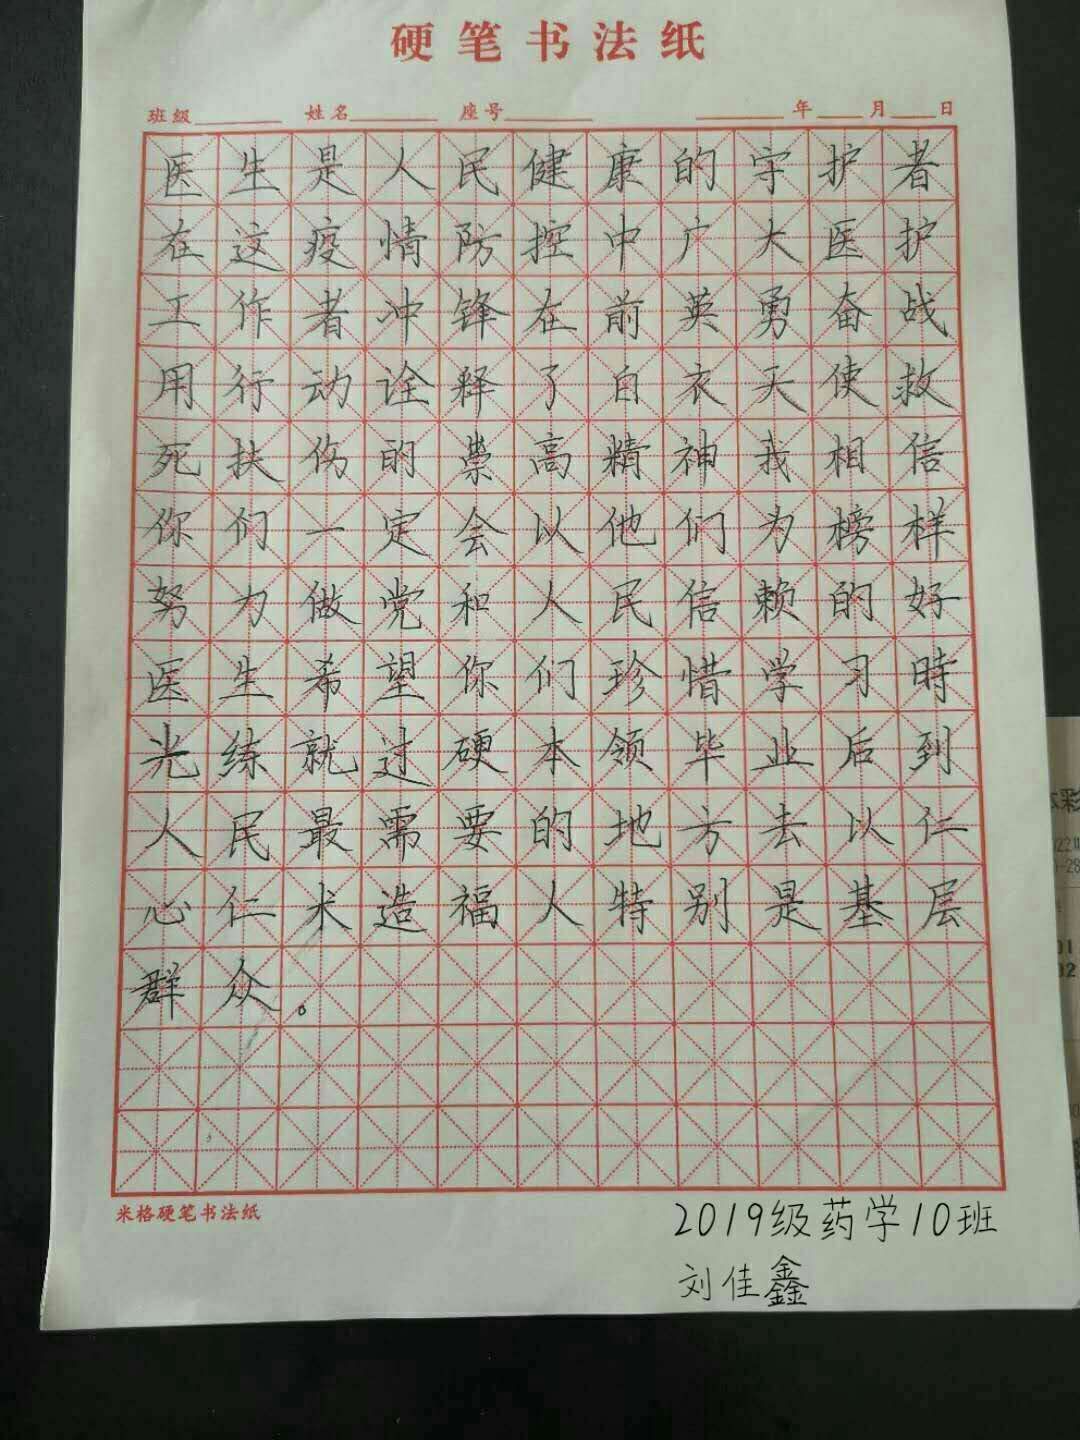 硬笔书法纸
班级 姓名 座号 年 月 日
医生是人民健康的守护者
在这疫情防控中广大医护
工作者冲锋在前英勇奋战
用行动诠释了白衣天使救
死扶伤的崇高精神我相信
你们一定会以他们为榜样
努力做党和人民信赖的好
医生希望你们珍惜学习時
光练就过硬本领毕业后到
人民最需要的地方去以仁
心仁术造福人特别是基层
群众。
米格硬笔书法纸
2019级药学10班
刘佳鑫